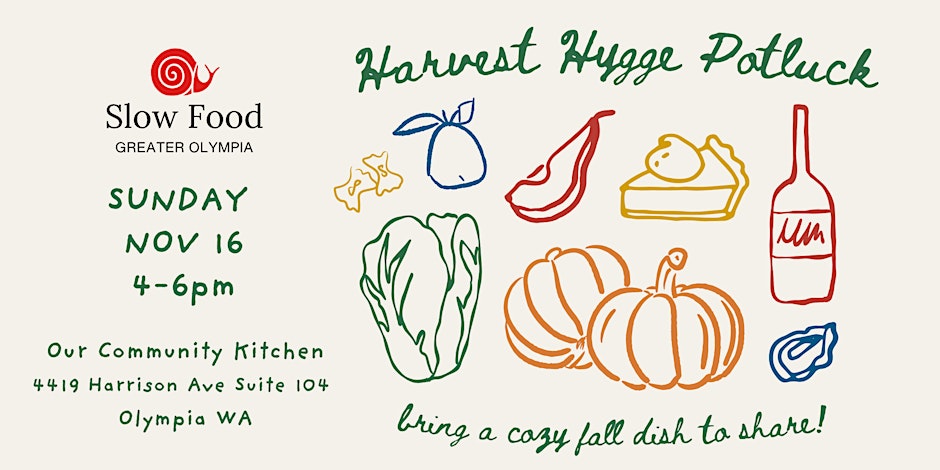 Harvest Hygge Potluck
Slow Food
GREATER OLYMPIA
SUNDAY
NOV 16
4-6pm
Our Community Kitchen
4419 Harrison Ave Suite 104
Olympia WA
bring a cozy fall dish to share!